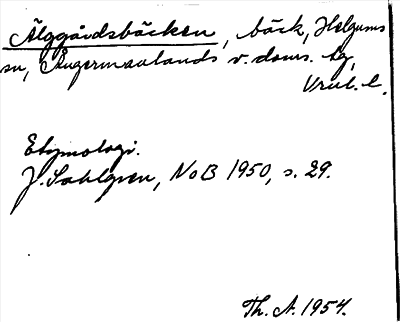 Älggårdsbäcken, bäck, Helgums
sn, Ångermanlands v. doms. tg,
Vnrl. l.
Etymologi.
J. Sahlgren, NoB 1950, s. 29.
Th. A. 1954.